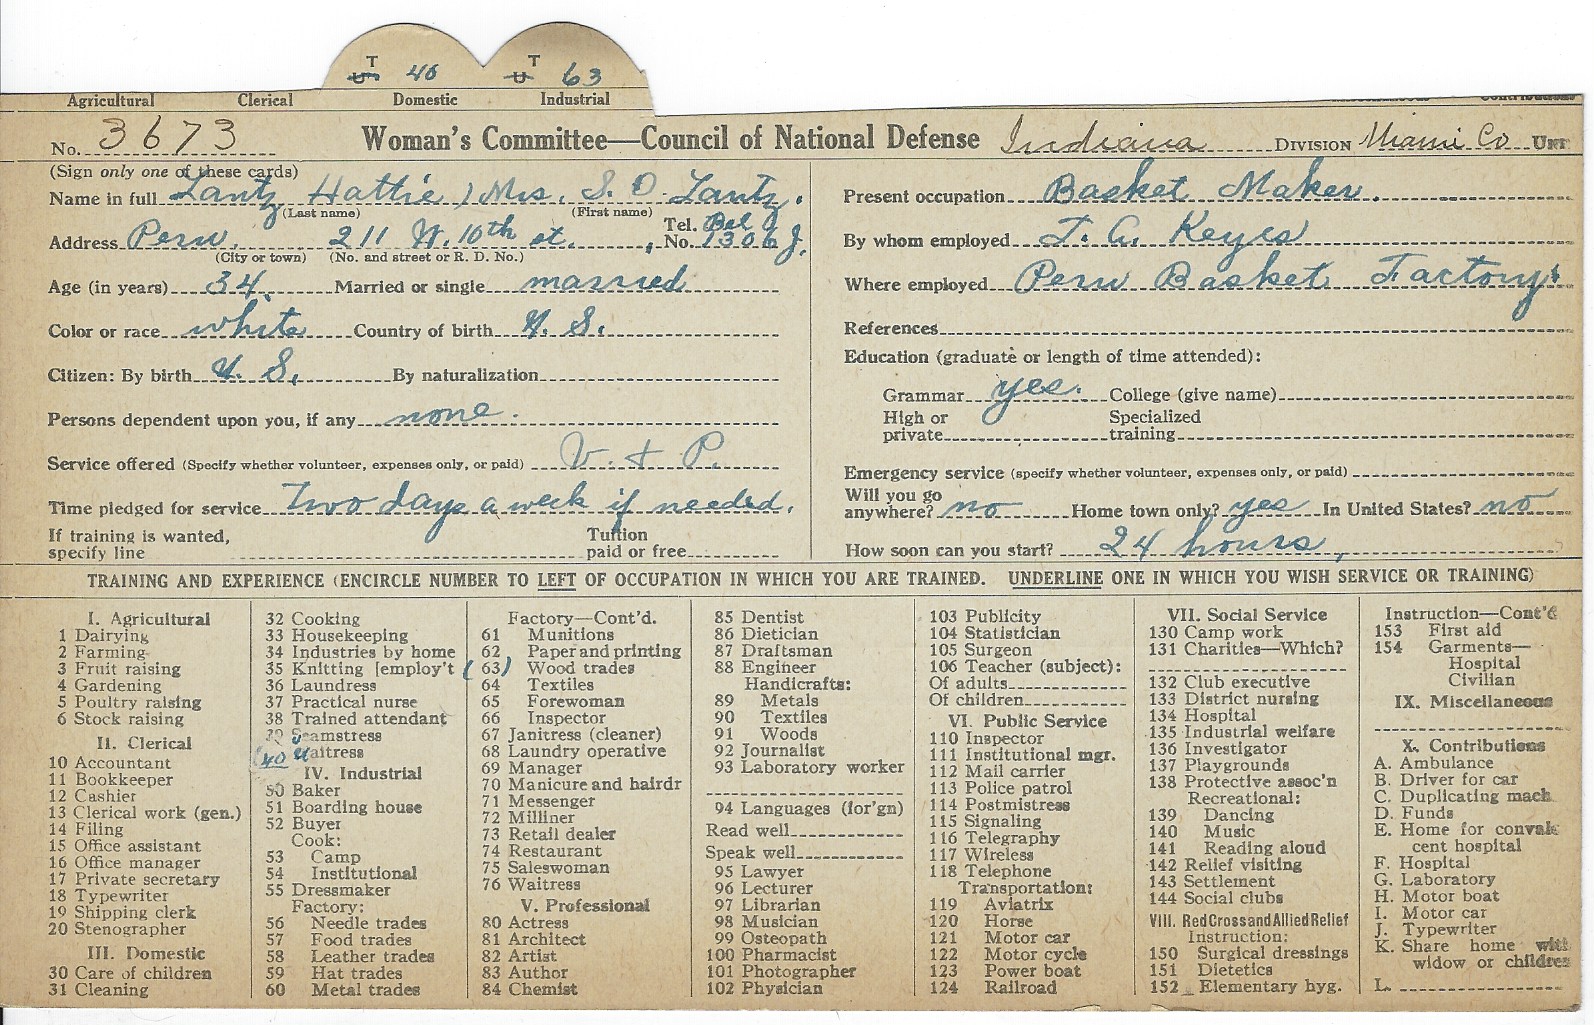 T T
U 40 U 63
Agricultural Clerical Domestic Industrial
No. 3673 Woman's Committee—Council of National Defense Indiana DIVISION Miami Co UNIT
(Sign only one of these cards)
Name in full Lantz Hattie, Mrs. S. O. Lantz.
(Last name) (First name)
Address Peru, 211 W. 10th st., Tel. No. Bel 1306 J.
(City or town) (No. and street or R. D. No.)
Age (in years) 34. Married or single married
Color or race white Country of birth U. S.
Citizen: By birth U. S. By naturalization
Persons dependent upon you, if any none.
Service offered (Specify whether volunteer, expenses only, or paid) V. + P.
Time pledged for service Two days a week if needed.
If training is wanted, specify line Tuition paid or free
Present occupation Basket Maker.
By whom employed J. A. Keyes
Where employed Peru Basket Factory.
References
Education (graduate or length of time attended):
Grammar yes. College (give name)
High or private Specialized training
Emergency service (specify whether volunteer, expenses only, or paid)
Will you go anywhere? no Home town only? yes In United States? no
How soon can you start? 24 hours,
TRAINING AND EXPERIENCE (ENCIRCLE NUMBER TO LEFT OF OCCUPATION IN WHICH YOU ARE TRAINED. UNDERLINE ONE IN WHICH YOU WISH SERVICE OR TRAINING)
I. Agricultural
1 Dairying
2 Farming
3 Fruit raising
4 Gardening
5 Poultry raising
6 Stock raising
II. Clerical
10 Accountant
11 Bookkeeper
12 Cashier
13 Clerical work (gen.)
14 Filing
15 Office assistant
16 Office manager
17 Private secretary
18 Typewriter
19 Shipping clerk
20 Stenographer
III. Domestic
30 Care of children
31 Cleaning
32 Cooking
33 Housekeeping
34 Industries by home
35 Knitting [employ't
36 Laundress
37 Practical nurse
38 Trained attendant
39 Seamstress
40 Waitress
IV. Industrial
50 Baker
51 Boarding house
52 Buyer
Cook:
53 Camp
54 Institutional
55 Dressmaker
Factory:
56 Needle trades
57 Food trades
58 Leather trades
59 Hat trades
60 Metal trades
Factory—Cont'd.
61 Munitions
62 Paper and printing
(63) Wood trades
64 Textiles
65 Forewoman
66 Inspector
67 Janitress (cleaner)
68 Laundry operative
69 Manager
70 Manicure and hairdr
71 Messenger
72 Milliner
73 Retail dealer
74 Restaurant
75 Saleswoman
76 Waitress
V. Professional
80 Actress
81 Architect
82 Artist
83 Author
84 Chemist
85 Dentist
86 Dietician
87 Draftsman
88 Engineer
Handicrafts:
89 Metals
90 Textiles
91 Woods
92 Journalist
93 Laboratory worker
94 Languages (for'gn)
Read well
Speak well
95 Lawyer
96 Lecturer
97 Librarian
98 Musician
99 Osteopath
100 Pharmacist
101 Photographer
102 Physician
103 Publicity
104 Statistician
105 Surgeon
106 Teacher (subject):
Of adults
Of children
VI. Public Service
110 Inspector
111 Institutional mgr.
112 Mail carrier
113 Police patrol
114 Postmistress
115 Signaling
116 Telegraphy
117 Wireless
118 Telephone
Transportation:
119 Aviatrix
120 Horse
121 Motor car
122 Motor cycle
123 Power boat
124 Railroad
VII. Social Service
130 Camp work
131 Charities—Which?
132 Club executive
133 District nursing
134 Hospital
135 Industrial welfare
136 Investigator
137 Playgrounds
138 Protective assoc'n
Recreational:
139 Dancing
140 Music
141 Reading aloud
142 Relief visiting
143 Settlement
144 Social clubs
VIII. Red Cross and Allied Relief
Instruction:
150 Surgical dressings
151 Dietetics
152 Elementary hyg.
Instruction—Cont'd
153 First aid
154 Garments—
Hospital
Civilian
IX. Miscellaneous
X. Contributions
A. Ambulance
B. Driver for car
C. Duplicating mach
D. Funds
E. Home for convales
cent hospital
F. Hospital
G. Laboratory
H. Motor boat
I. Motor car
J. Typewriter
K. Share home with
widow or children
L.